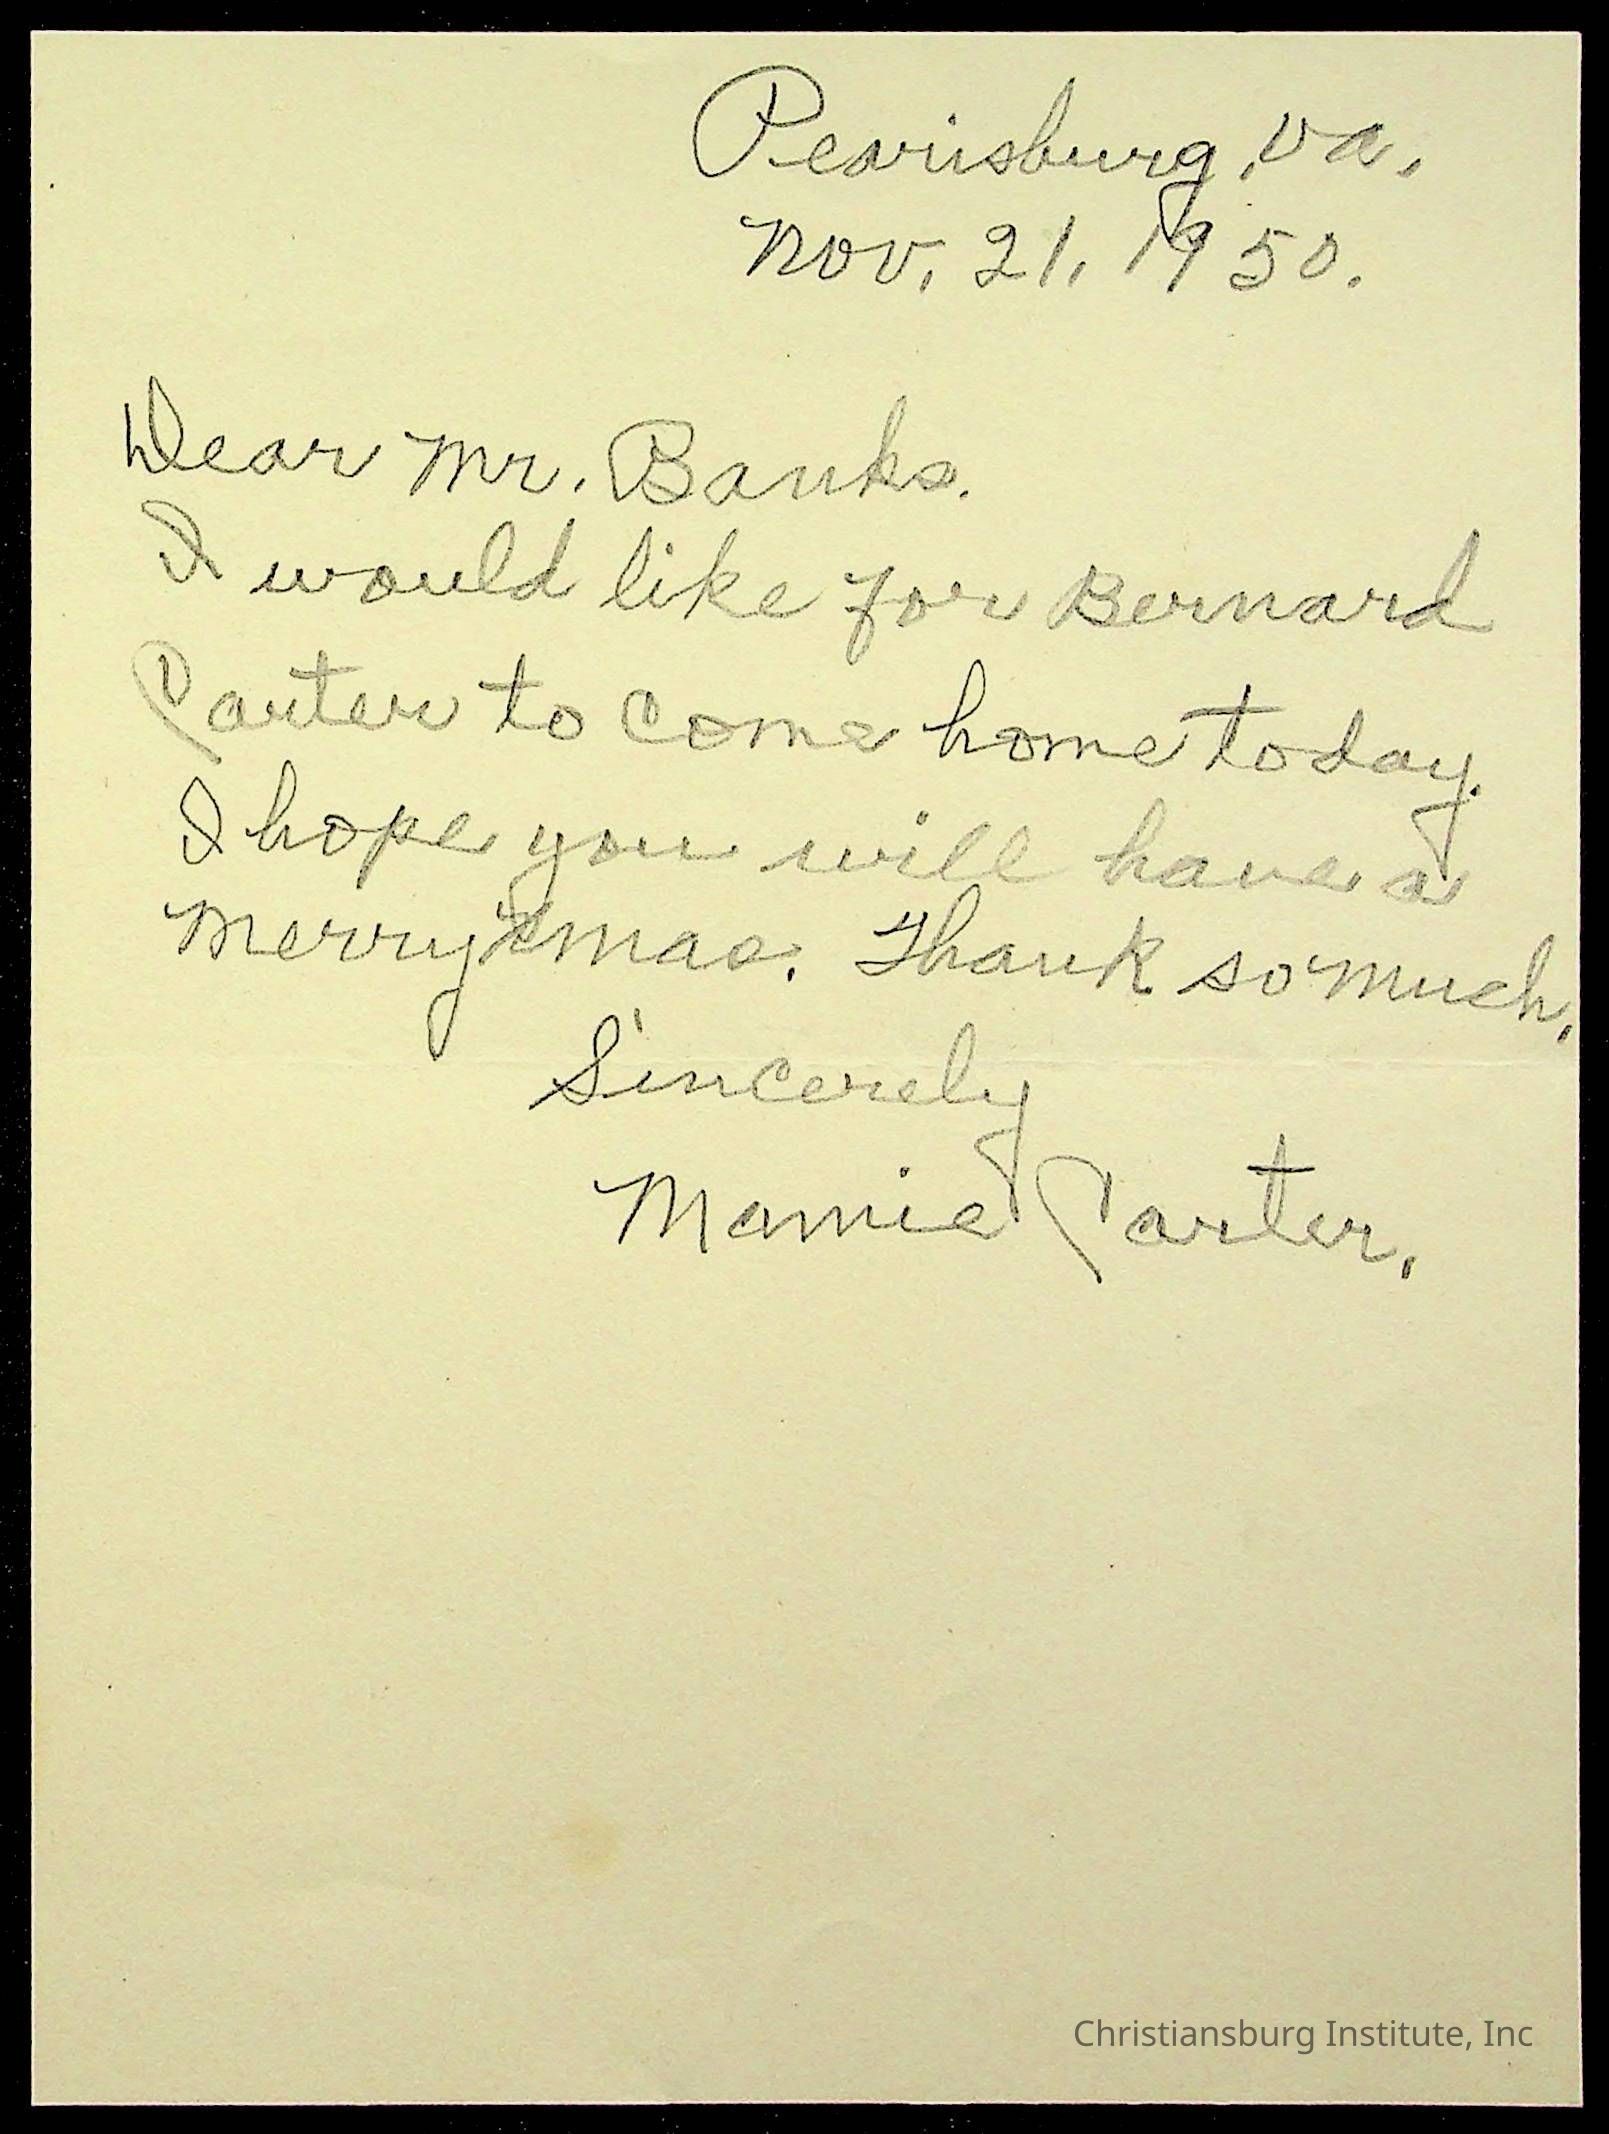 Pearisburg, Va.
Nov. 21, 1950.
Dear Mr. Banks.
I would like for Bernard
Carter to come home today.
I hope you will have a
Merry Xmas. Thank so much.
Sincerely
Mamie Carter.
Christiansburg Institute, Inc